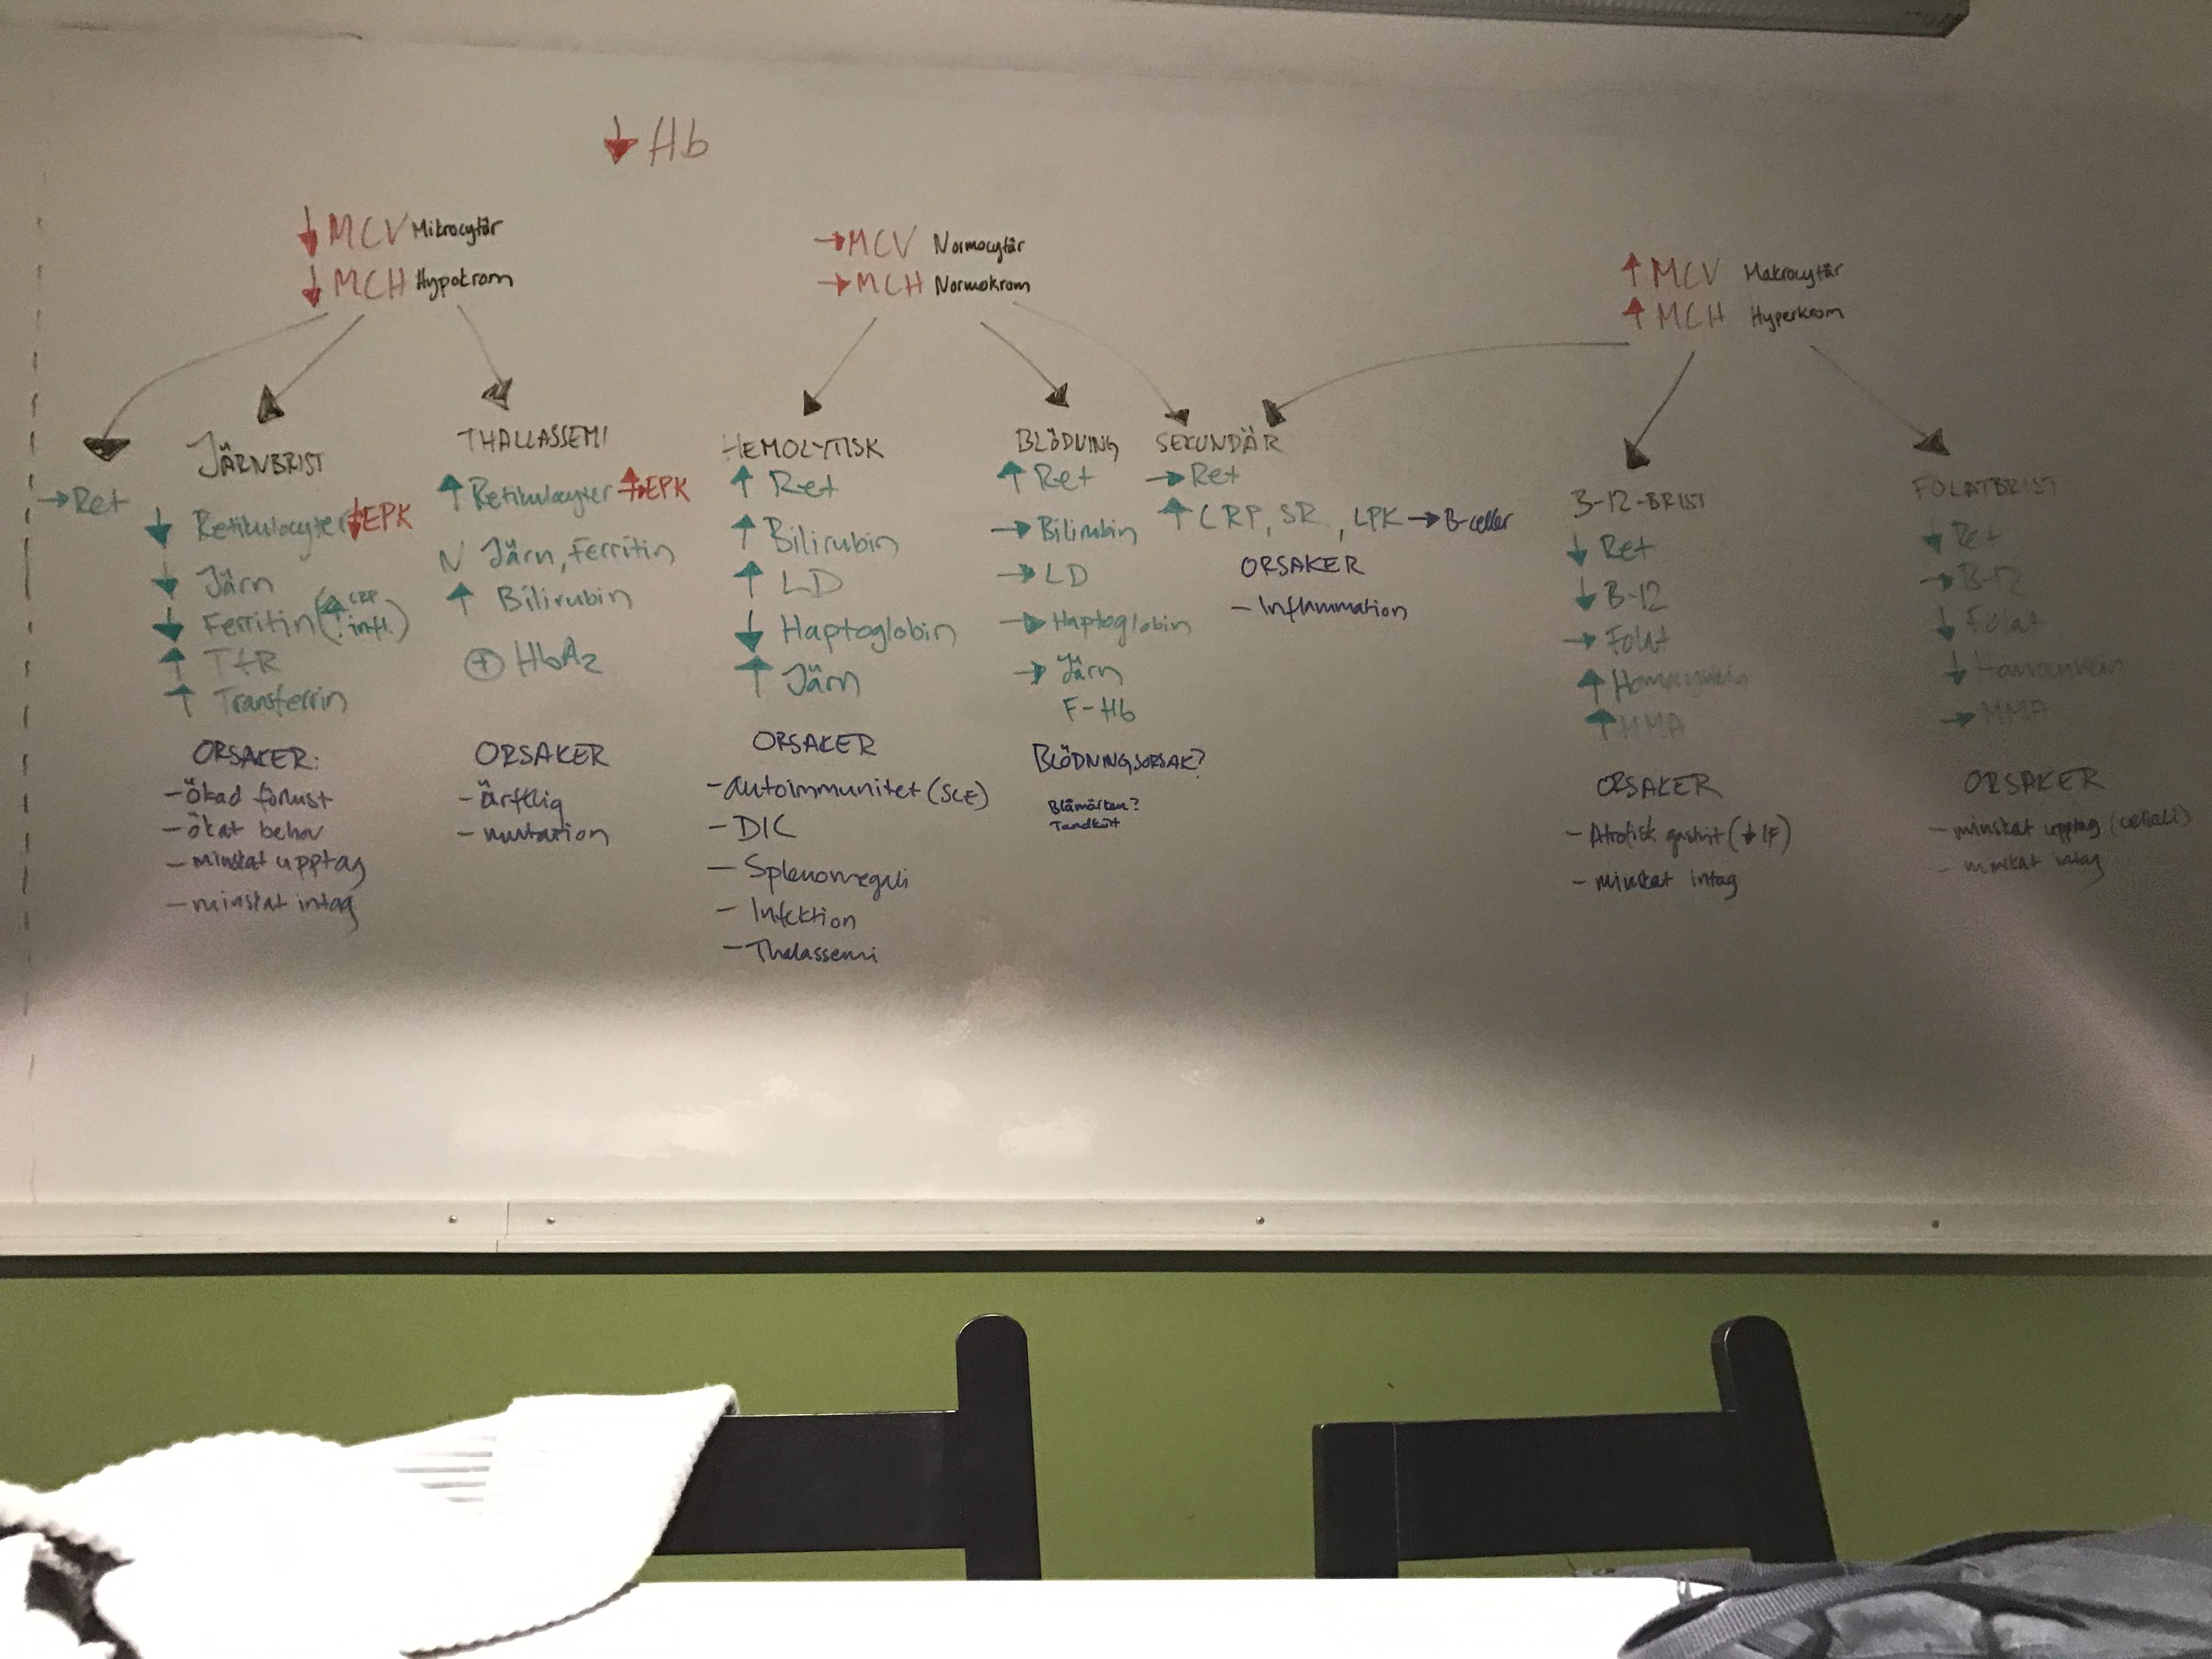 ↓ Hb
↓ MCV Mikrocytär
↓ MCH Hypokrom
→ MCV Normocytär
→ MCH Normokrom
↑ MCV Makrocytär
↑ MCH Hyperkrom
→ Ret
JÄRNBRIST
↓ Retikulocyter ↓ EPK
↓ Järn
↓ Ferritin (↑ CRP infl.)
↑ TfR
↑ Transferrin
ORSAKER:
- ökad förlust
- ökat behov
- minskat upptag
- minskat intag
THALLASSEMI
↑ Retikulocyter ↑ EPK
N Järn, Ferritin
↑ Bilirubin
⊕ HbA2
ORSAKER
- ärftlig
- mutation
HEMOLYTISK
↑ Ret
↑ Bilirubin
↑ LD
↓ Haptoglobin
↑ Järn
ORSAKER
- Autoimmunitet (SLE)
- DIC
- Splenomegali
- Infektion
- Thalassemi
BLÖDNING
↑ Ret
→ Bilirubin
→ LD
→ Haptoglobin
→ Järn
F-Hb
BLÖDNINGSORSAK?
Blåmärken?
Tandkött
SEKUNDÄR
→ Ret
↑ CRP, SR, LPK → B-celler
ORSAKER
- Inflammation
B-12-BRIST
↓ Ret
↓ B-12
→ Folat
↑ Homocystein
↑ MMA
ORSAKER
- Atrofisk gastrit (↓ IF)
- minskat intag
FOLATBRIST
↓ Ret
→ B-12
↓ Folat
↓ Homocystein
→ MMA
ORSAKER
- minskat upptag (celiaki)
- minskat intag